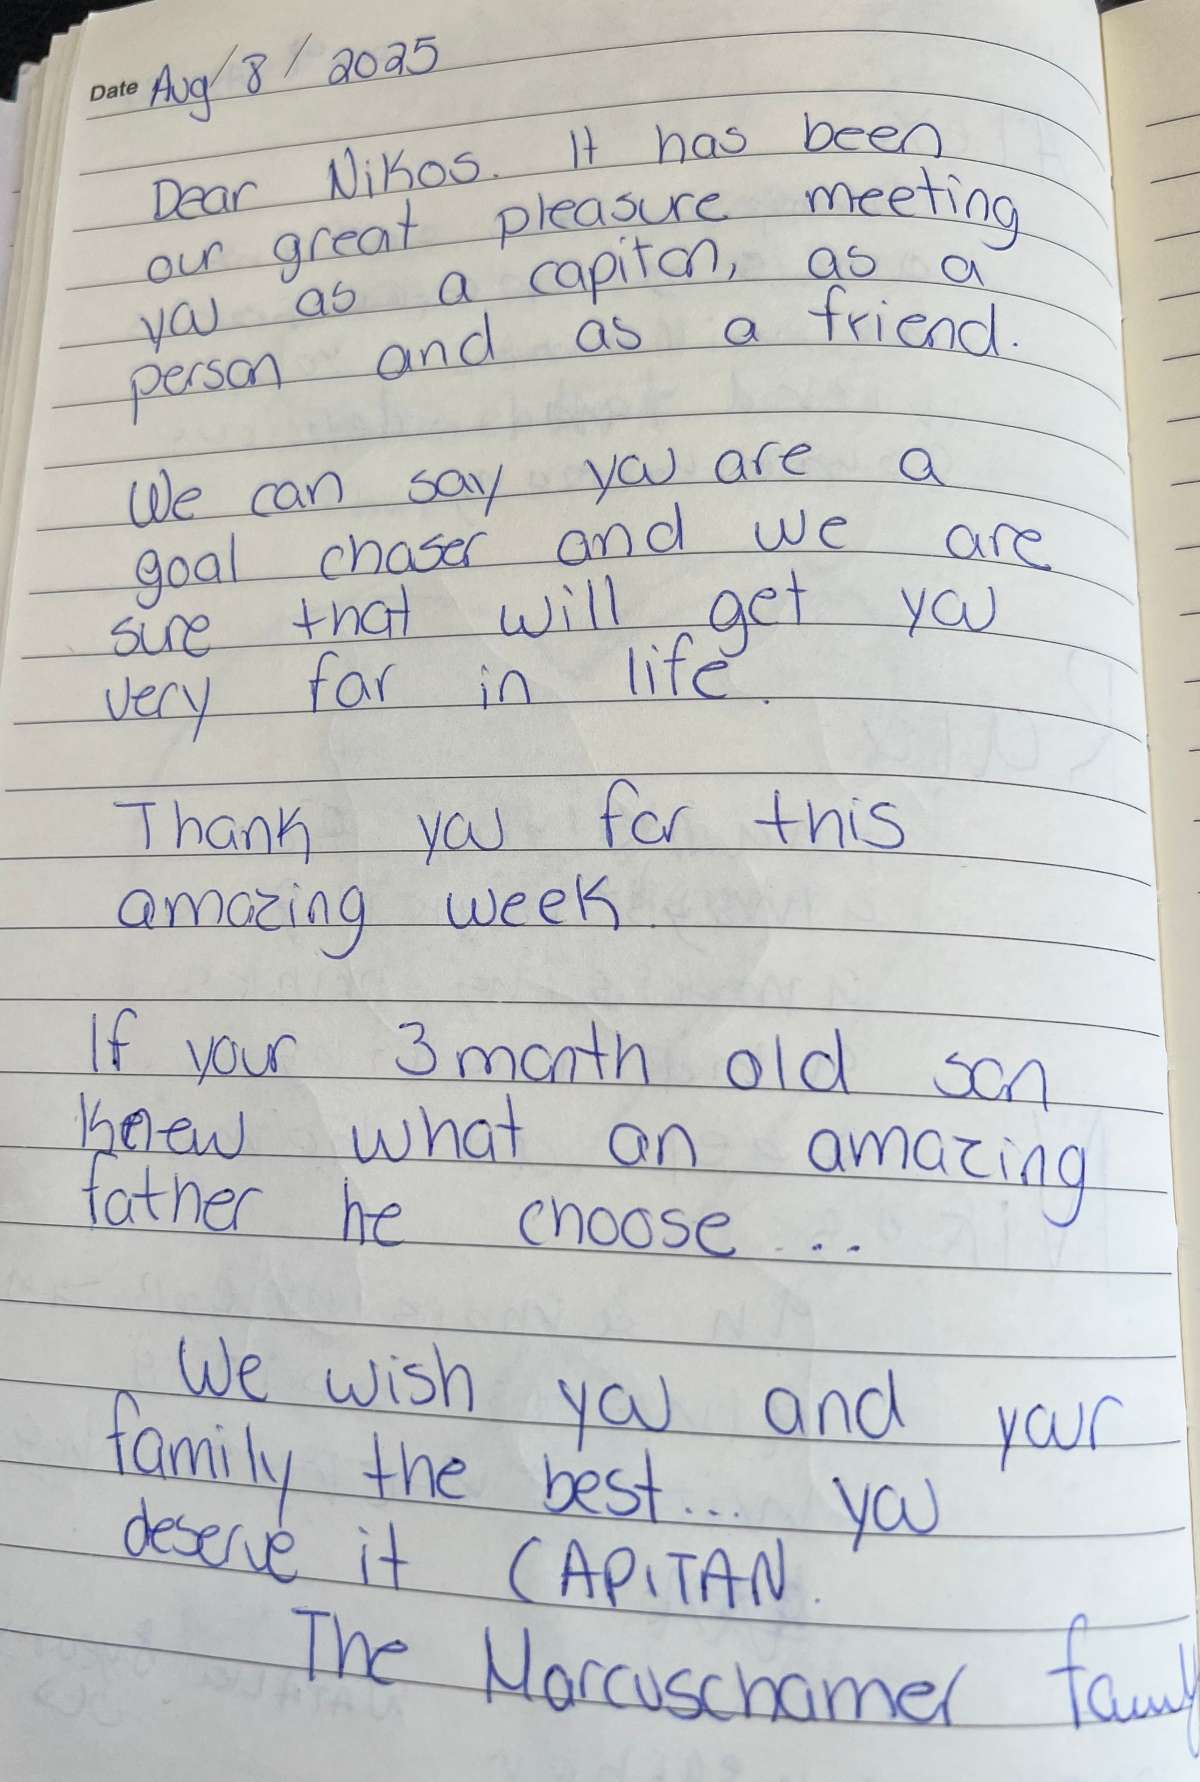 Date Aug/8/2025
Dear Nikos. It has been
our great pleasure meeting
you as a capitan, as a
person and as a friend.
We can say you are a
goal chaser and we are
sure that will get you
very far in life.
Thank you for this
amazing week.
If your 3 month old son
knew what an amazing
father he choose...
We wish you and your
family the best... you
deserve it CAPITAN.
The Marcuschamer family